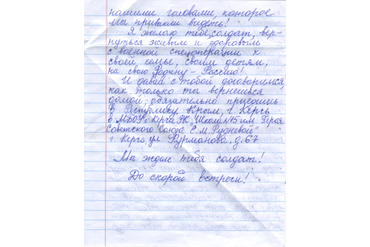 нашими головами, которое
мы привыкли видеть!
Я желаю тебе, солдат, вер-
нуться живым и здоровым
с военной спецоперации к
своей семье, своим детям,
на свою Родину - Россию!
И давай с тобой договоримся
как только ты вернешься
домой, обязательно приедешь
в Республику Крым, г. Керчь
в МБОУ г. Керчи РК "Школа №15 им. Героя
Советского Союза Е.М. Рудневой"
г. Керчь ул. Курманова, д. 67
Мы ждем тебя солдат!
До скорой встречи!